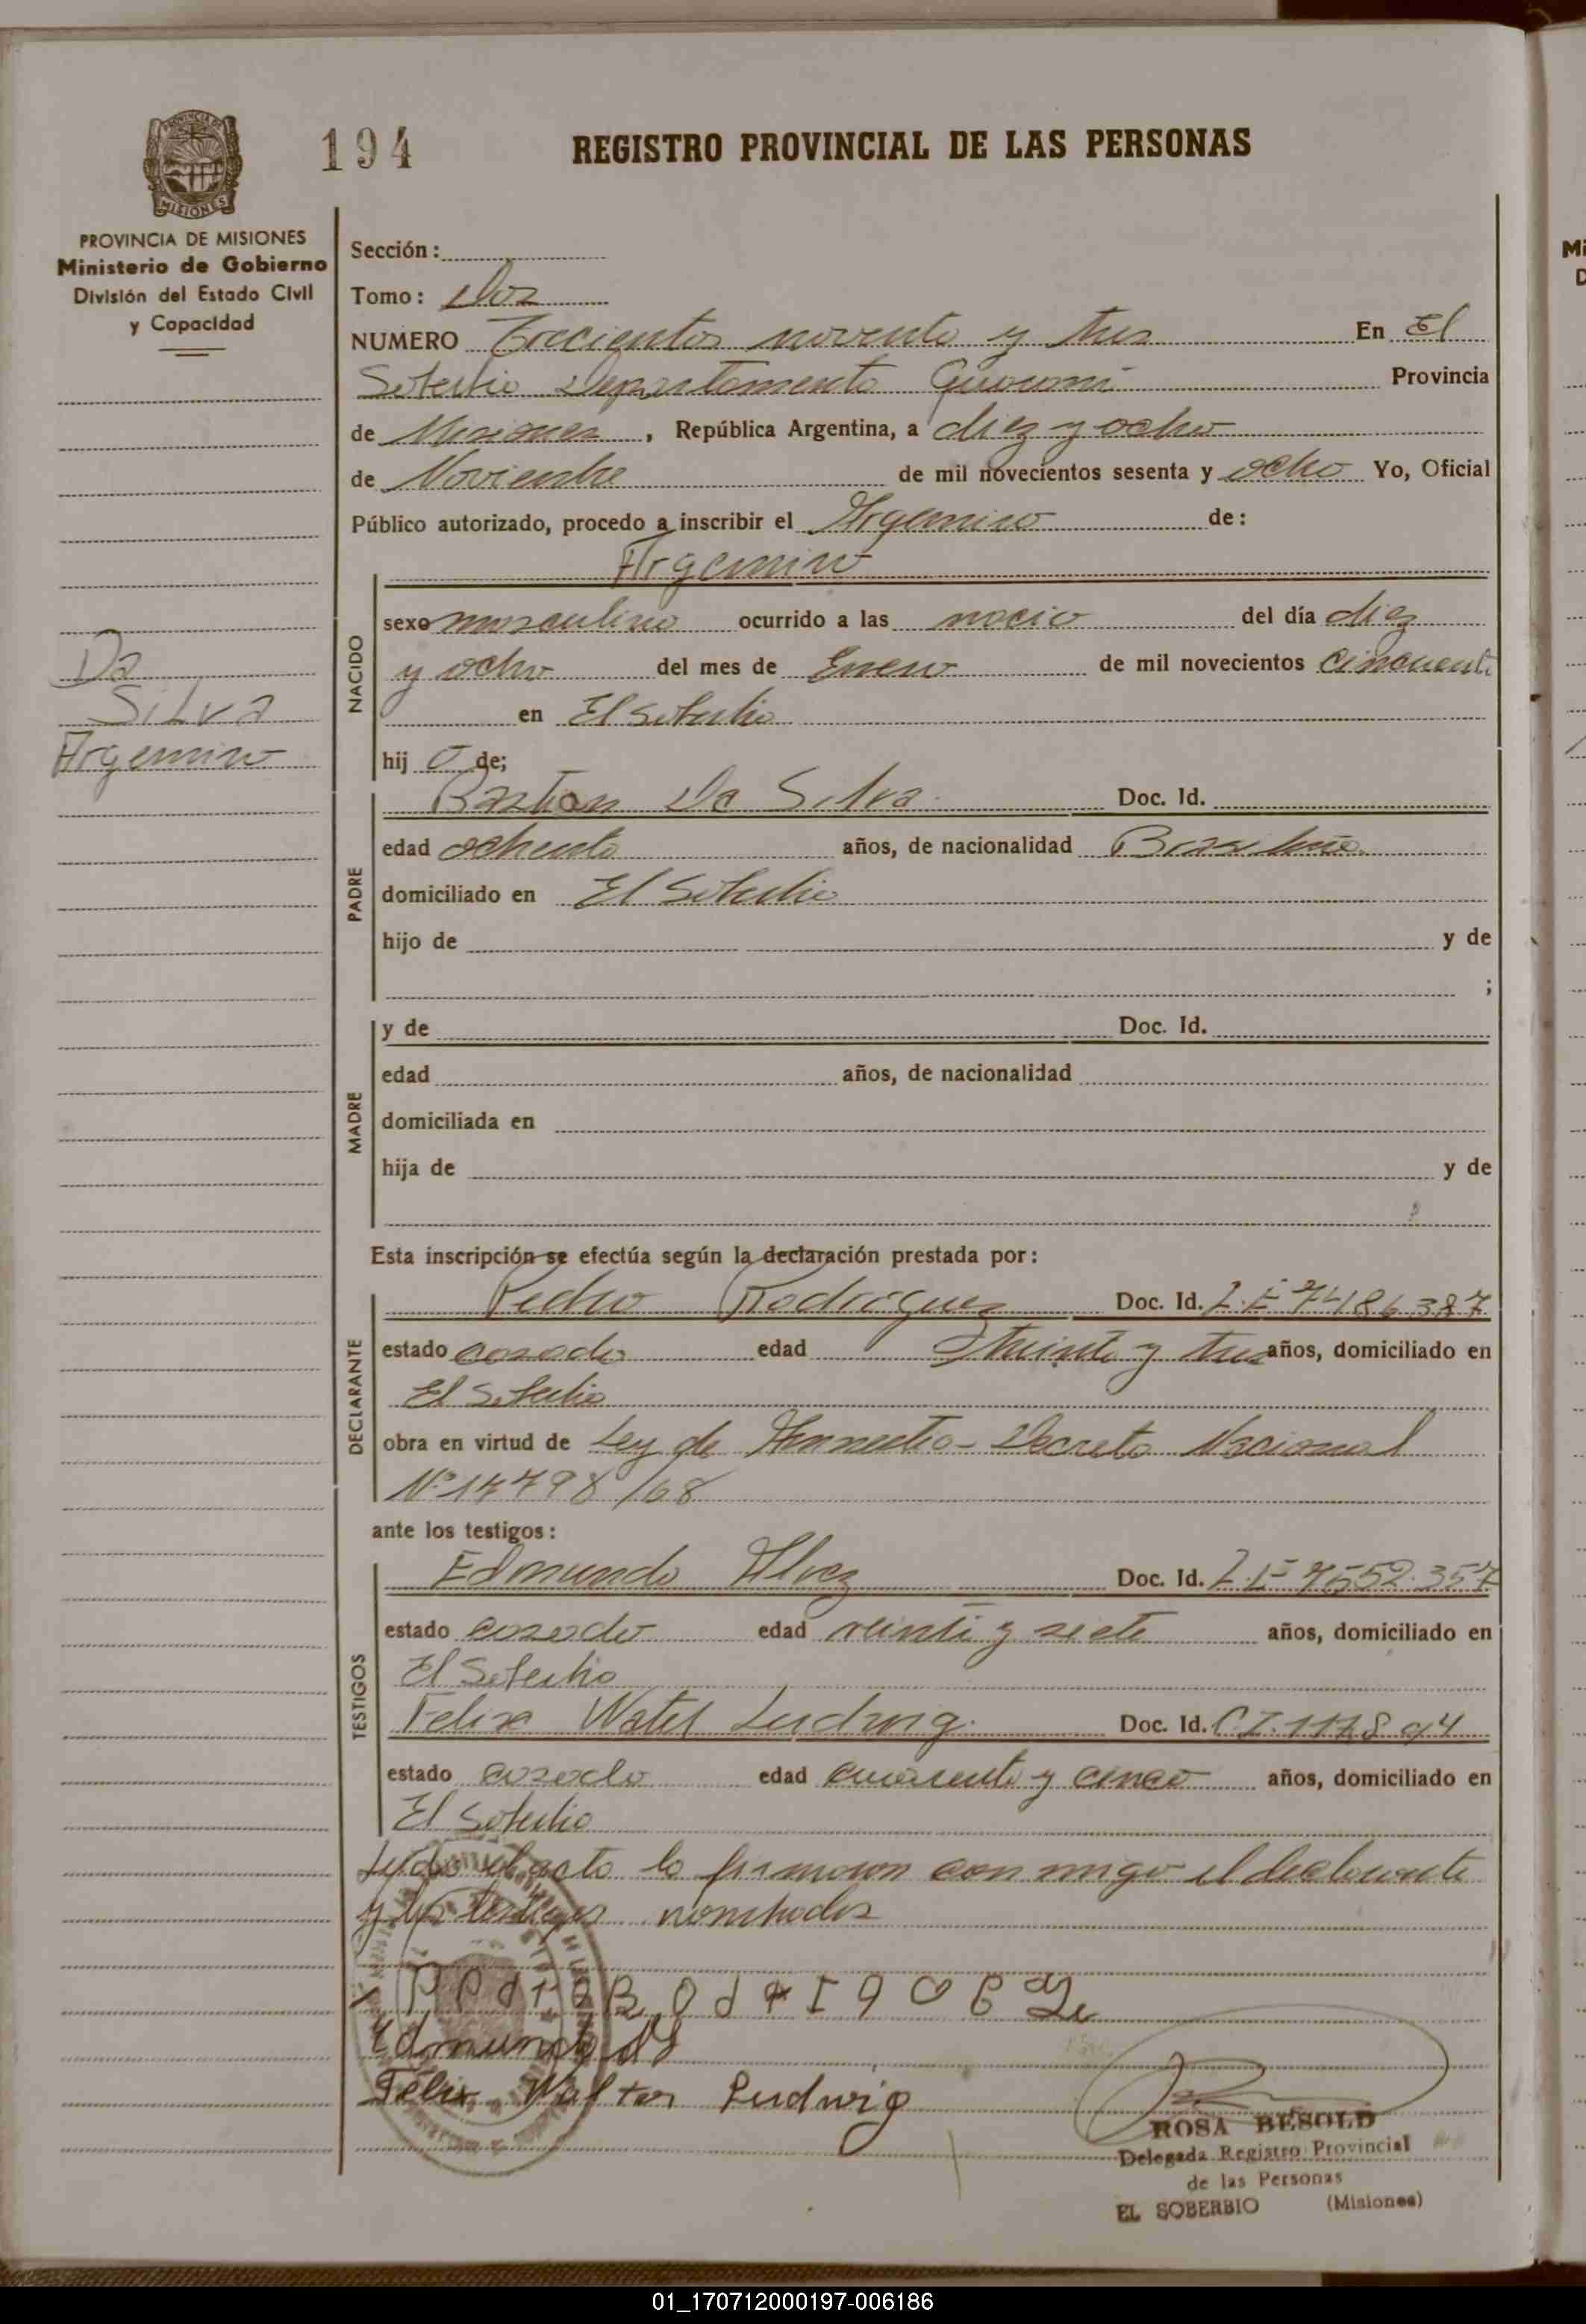 PROVINCIA DE MISIONES
194
REGISTRO PROVINCIAL DE LAS PERSONAS
PROVINCIA DE MISIONES
Ministerio de Gobierno
División del Estado Civil
y Capacidad
Sección:
Tomo: Dos
NUMERO Trecientos noventa y tres En El
Soberbio Departamento Guarani Provincia
de Misiones, República Argentina, a diez y ocho
de Noviembre de mil novecientos sesenta y ocho Yo, Oficial
Público autorizado, procedo a inscribir el Argemiro de:
Argemiro
NACIDO
sexo masculino ocurrido a las nacio del día diez
y ocho del mes de Enero de mil novecientos cincuenta
en El Soberbio
hij o de;
Da
Silva
Argemiro
PADRE
Bastian Da Silva Doc. Id.
edad ochenta años, de nacionalidad
domiciliado en El Soberbio
hijo de y de
;
MADRE
y de Doc. Id.
edad años, de nacionalidad
domiciliada en
hija de y de
Esta inscripción se efectúa según la declaración prestada por:
DECLARANTE
Pedro Rodriguez Doc. Id.
estado casado edad treinta y tres años, domiciliado en
El Soberbio
obra en virtud de Ley de Decreto Nacional
ante los testigos:
TESTIGOS
Edmundo Alvez Doc. Id. 7552.357
estado casado edad veinti y siete años, domiciliado en
El Soberbio
Felix Walter Ludwig Doc. Id.
estado casado edad cuarenta y cinco años, domiciliado en
El Soberbio
Leida el acta la firmaron con migo el declarante
y los testigos nombrados
Felix Walter Ludwig
ROSA BESOLD
Delegada Registro Provincial
de las Personas
EL SOBERBIO (Misiones)
01_170712000197-006186